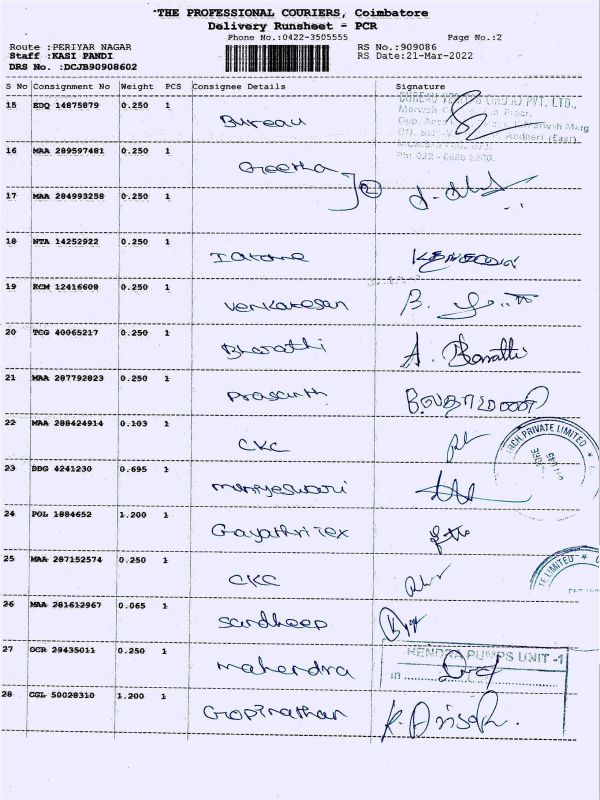 THE PROFESSIONAL COURIERS, Coimbatore
Delivery Runsheet - PCR
Phone No.:0422-3505555 Page No.:2
Route :PERIYAR NAGAR RS No.:909086
Staff :KASI PANDI RS Date:21-Mar-2022
DRS No. :DCJB90908602
S No Consignment No Weight PCS Consignee Details Signature
15 EDQ 14875879 0.250 1 Bureau
PVT. LTD.,
Marwah Marg
Andheri (East)
16 MAA 289597481 0.250 1 Geetha
17 MAA 284993258 0.250 1 2
18 NTA 14252922 0.250 1
19 KCM 12416608 0.250 1 Venkatesan B.
20 TCG 40065217 0.250 1 Bharathi A. Barathi
21 MAA 287792823 0.250 1 Prasanth
22 MAA 288424914 0.103 1 CKC
RCH PRIVATE LIMITED
23 DDG 4241230 0.695 1 muniyeswari
24 POL 1884652 1.200 1 Gayathri Tex
25 MAA 287152574 0.250 1 CKC
TE LIMITED
26 MAA 281612967 0.065 1 Sandheep
27 OCR 29435011 0.250 1 Mahendra
HENDRA PUMPS UNIT -1
28 CGL 50028310 1.200 1 Gopinathan